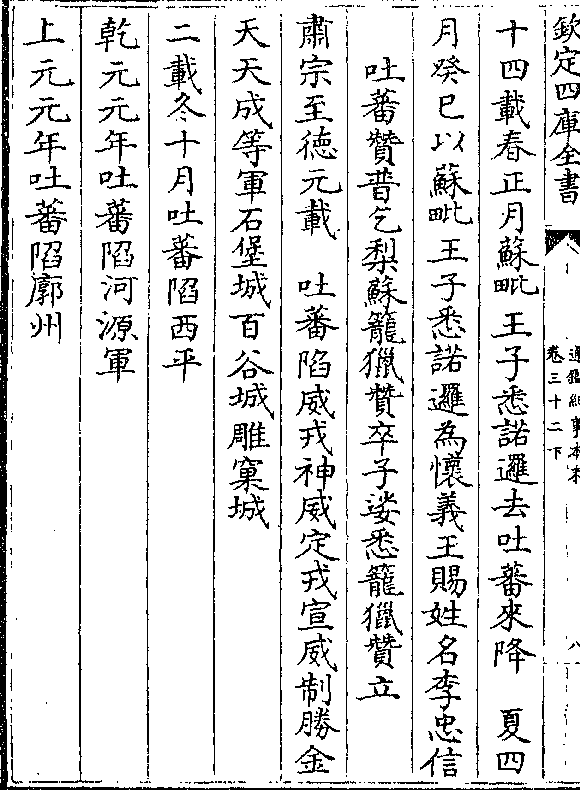 欽定四庫全書
通鑑紀事本末
卷三十二下
八
十四載春正月蘇毗王子悉諾邏去吐蕃來降　夏四
月癸巳以蘇毗王子悉諾邏為懷義王賜姓名李忠信
吐蕃贊普乞梨蘇籠獵贊卒子娑悉籠獵贊立
肅宗至德元載　吐蕃陷威戎神威定戎宣威制勝金
天天成等軍石堡城百谷城雕窠城
二載冬十月吐蕃陷西平
乾元元年吐蕃陷河源軍
上元元年吐蕃陷廓州